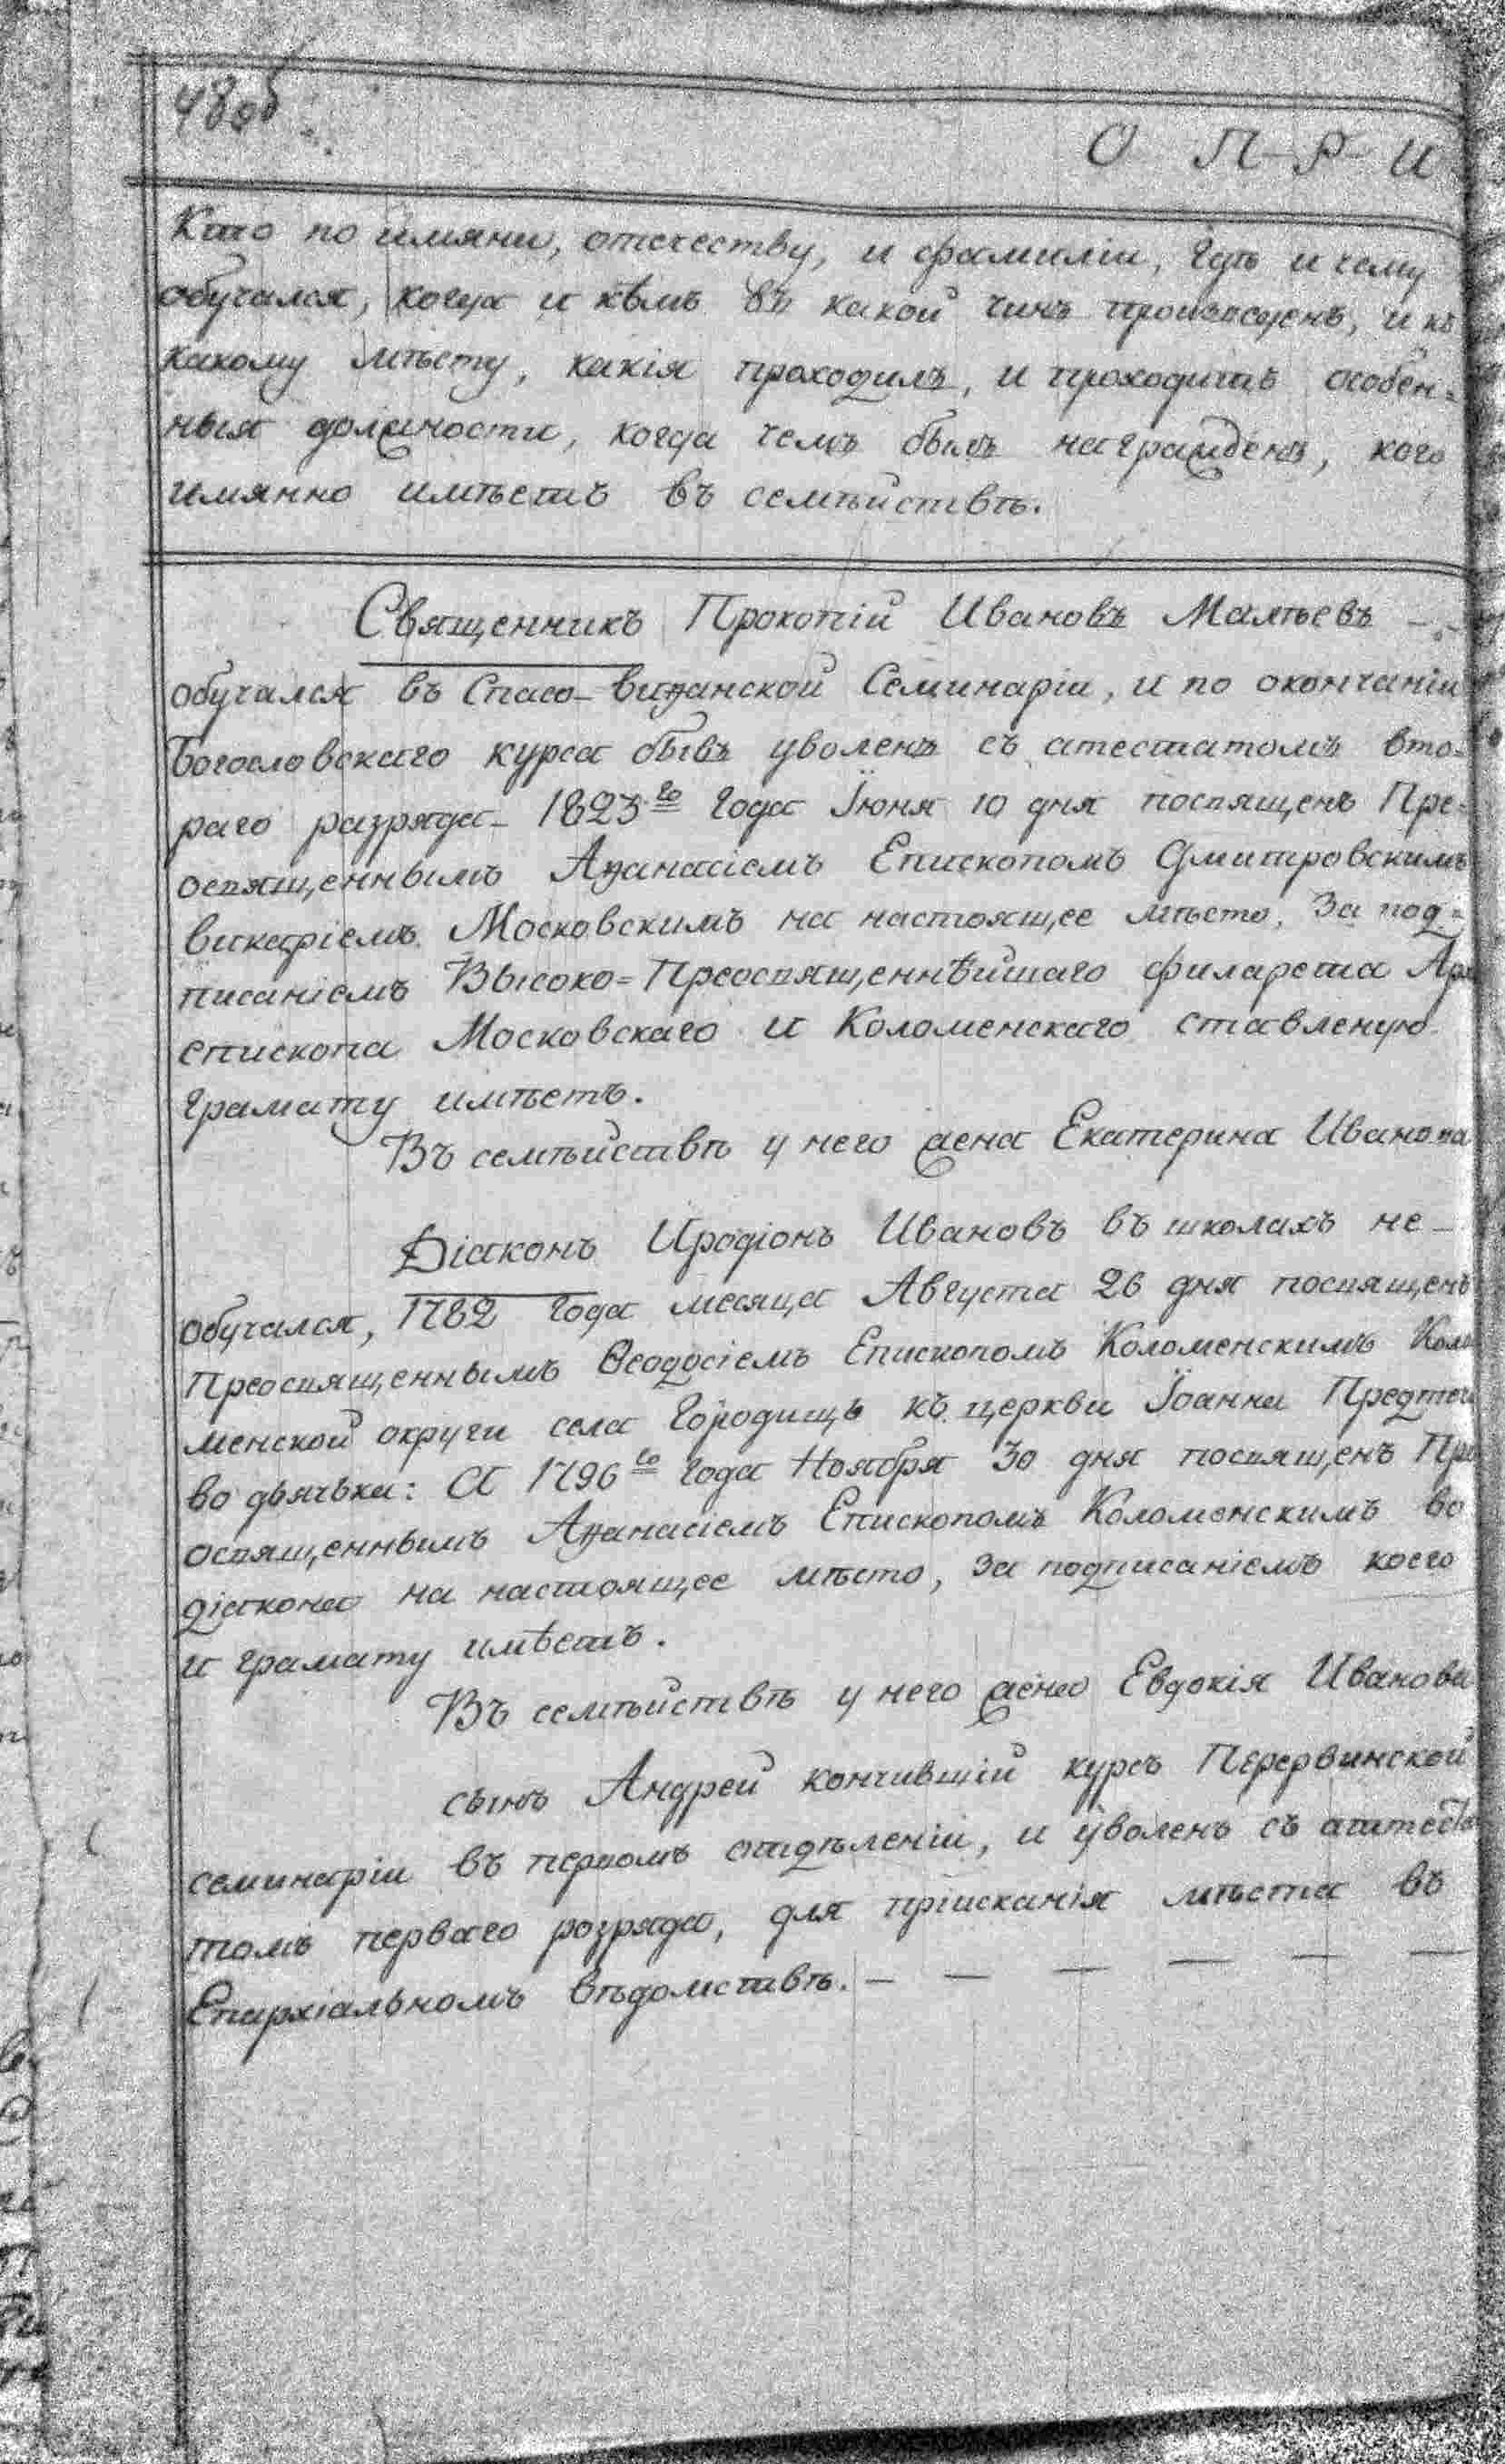 48об
О П Р И
Кто по имяни, отечеству, и фамиліи, гдѣ и чему
обучался, когда и кѣмъ въ какой чинъ произведенъ, и къ
какому мѣсту, какія проходилъ, и проходитъ особен=
ныя должности, когда чемъ былъ награжденъ, кого
имянно имѣетъ въ семѣйствѣ.
Священникъ Прокопій Ивановъ Малѣевъ
обучался въ Спасо-виѳанской Семинаріи, и по окончаніи
Богословскаго курса бывъ уволенъ съ атестатомъ вто=
раго разряда- 1823го года Іюня 10 дня посвященъ Пре=
освященнымъ Аѳанасіемъ Епископомъ Дмитровскимъ
викаріемъ Московскимъ на настоящее мѣсто, За под=
писаніемъ Высоко=Преосвященнѣйшаго Филарета Арх
епископа Московскаго и Коломенскаго ставленую
грамату имѣетъ.
Въ семѣйствѣ у него жена Екатерина Иванова
Діаконъ Иродіонъ Ивановъ въ школахъ не-
обучался, 1782 года месяца Августа 26 дня посвященъ
Преосвященнымъ Ѳеодосіемъ Епископомъ Коломенскимъ Коло
менской округи села Городищъ къ церкви Іоанна Предтечи
во дьячька: А 1796го года Ноября 30 дня посвященъ Пре
освященнымъ Аѳанасіемъ Епископомъ Коломенскимъ во
діакона на настоящее мѣсто, за подписаніемъ коего
и грамату имѣетъ.
Въ семѣйствѣ у него жена Евдокія Иванова
сынъ Андрей кончившій курсъ Перервинской
семинаріи въ первомъ отдѣленіи, и уволенъ съ аттеста
томъ перваго розряда, для пріисканія мѣста въ
Епархіальномъ вѣдомствѣ. - - - - - -